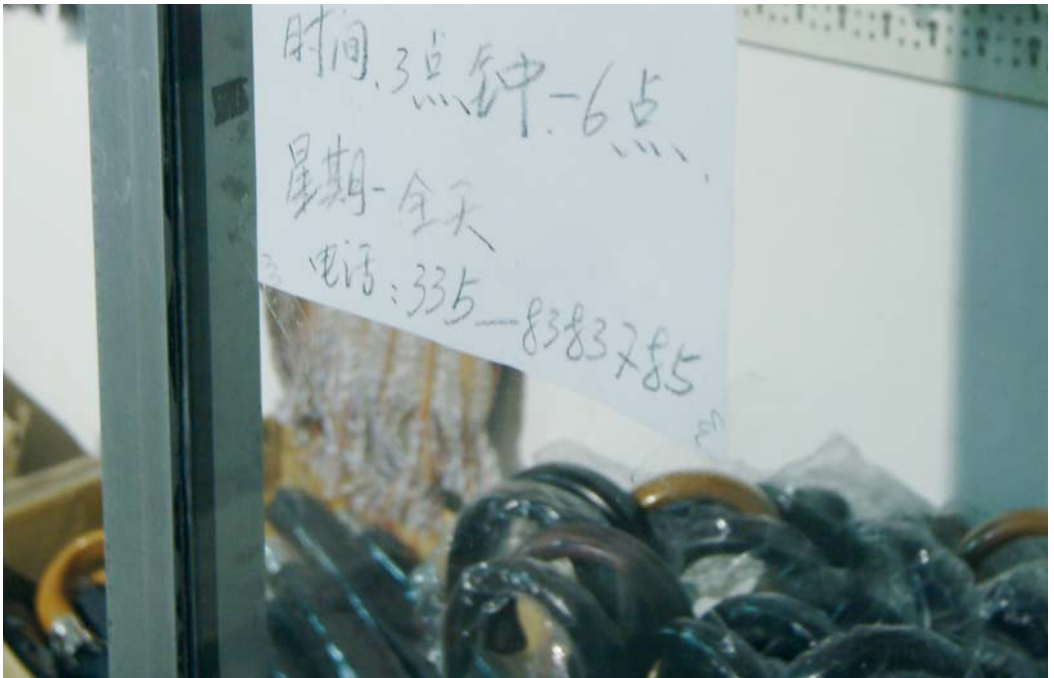 时间.3点钟.-6点、
星期-全天
电话:335—8383785